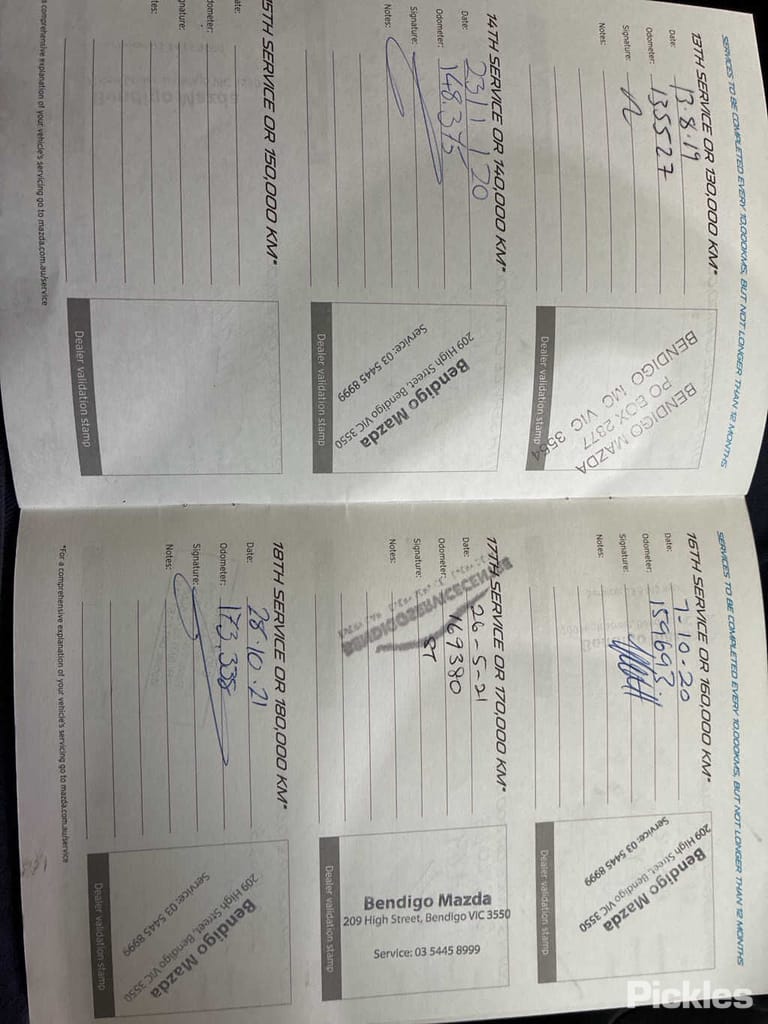 SERVICES TO BE COMPLETED EVERY 10,000KMS, BUT NOT LONGER THAN 12 MONTHS
13TH SERVICE OR 130,000 KM*
Date: 13.8.19
Odometer: 135527
Signature:
Notes:
BENDIGO MAZDA
PO BOX 2377
BENDIGO MC VIC 3554
Dealer validation stamp
14TH SERVICE OR 140,000 KM*
Date: 23/1/20
Odometer: 148,375
Signature:
Notes:
Bendigo Mazda
209 High Street, Bendigo VIC 3550
Service: 03 5445 8999
Dealer validation stamp
15TH SERVICE OR 150,000 KM*
ate:
dometer:
gnature:
tes:
Dealer validation stamp
a comprehensive explanation of your vehicle's servicing go to mazda.com.au/service
SERVICES TO BE COMPLETED EVERY 10,000KMS, BUT NOT LONGER THAN 12 MONTHS
16TH SERVICE OR 160,000 KM*
Date: 7-10-20
Odometer: 159693
Signature:
Notes:
Bendigo Mazda
209 High Street, Bendigo VIC 3550
Service: 03 5445 8999
Dealer validation stamp
17TH SERVICE OR 170,000 KM*
Date: 26-5-21
Odometer: 169380
Signature: ST
Notes:
Bendigo Mazda
209 High Street, Bendigo VIC 3550
Service: 03 5445 8999
Dealer validation stamp
18TH SERVICE OR 180,000 KM*
Date: 28.10.21
Odometer: 173,338
Signature:
Notes:
Bendigo Mazda
209 High Street, Bendigo VIC 3550
Service: 03 5445 8999
Dealer validation stamp
*For a comprehensive explanation of your vehicle's servicing go to mazda.com.au/service
Pickles